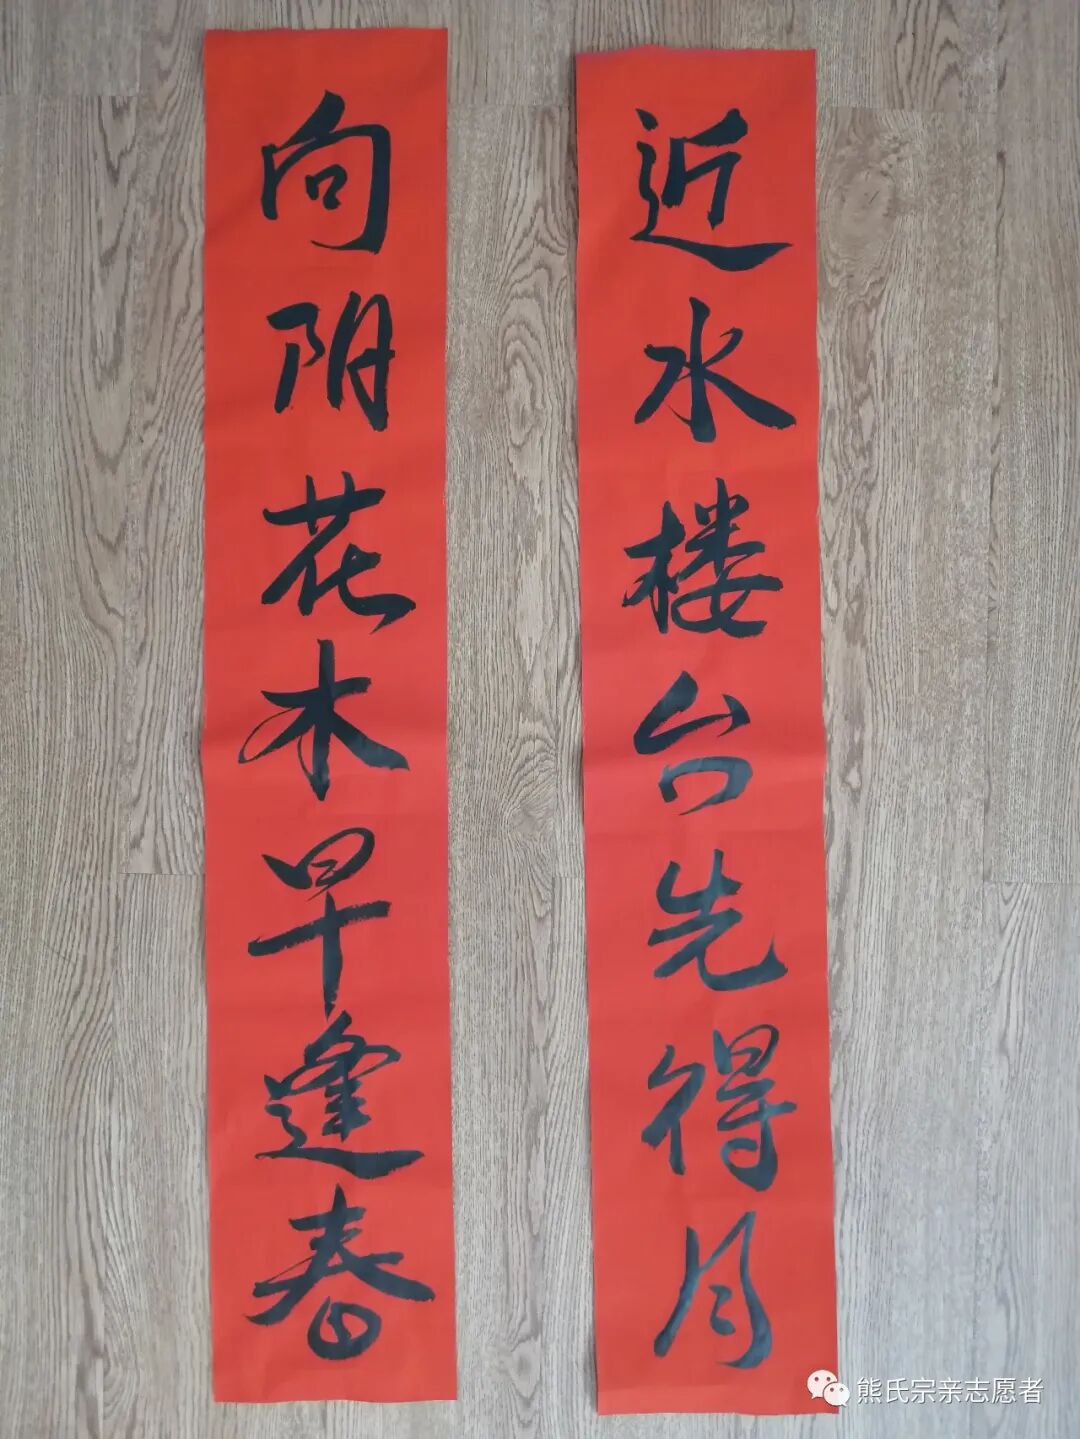 近水楼台先得月
向阳花木早逢春
熊氏宗亲志愿者